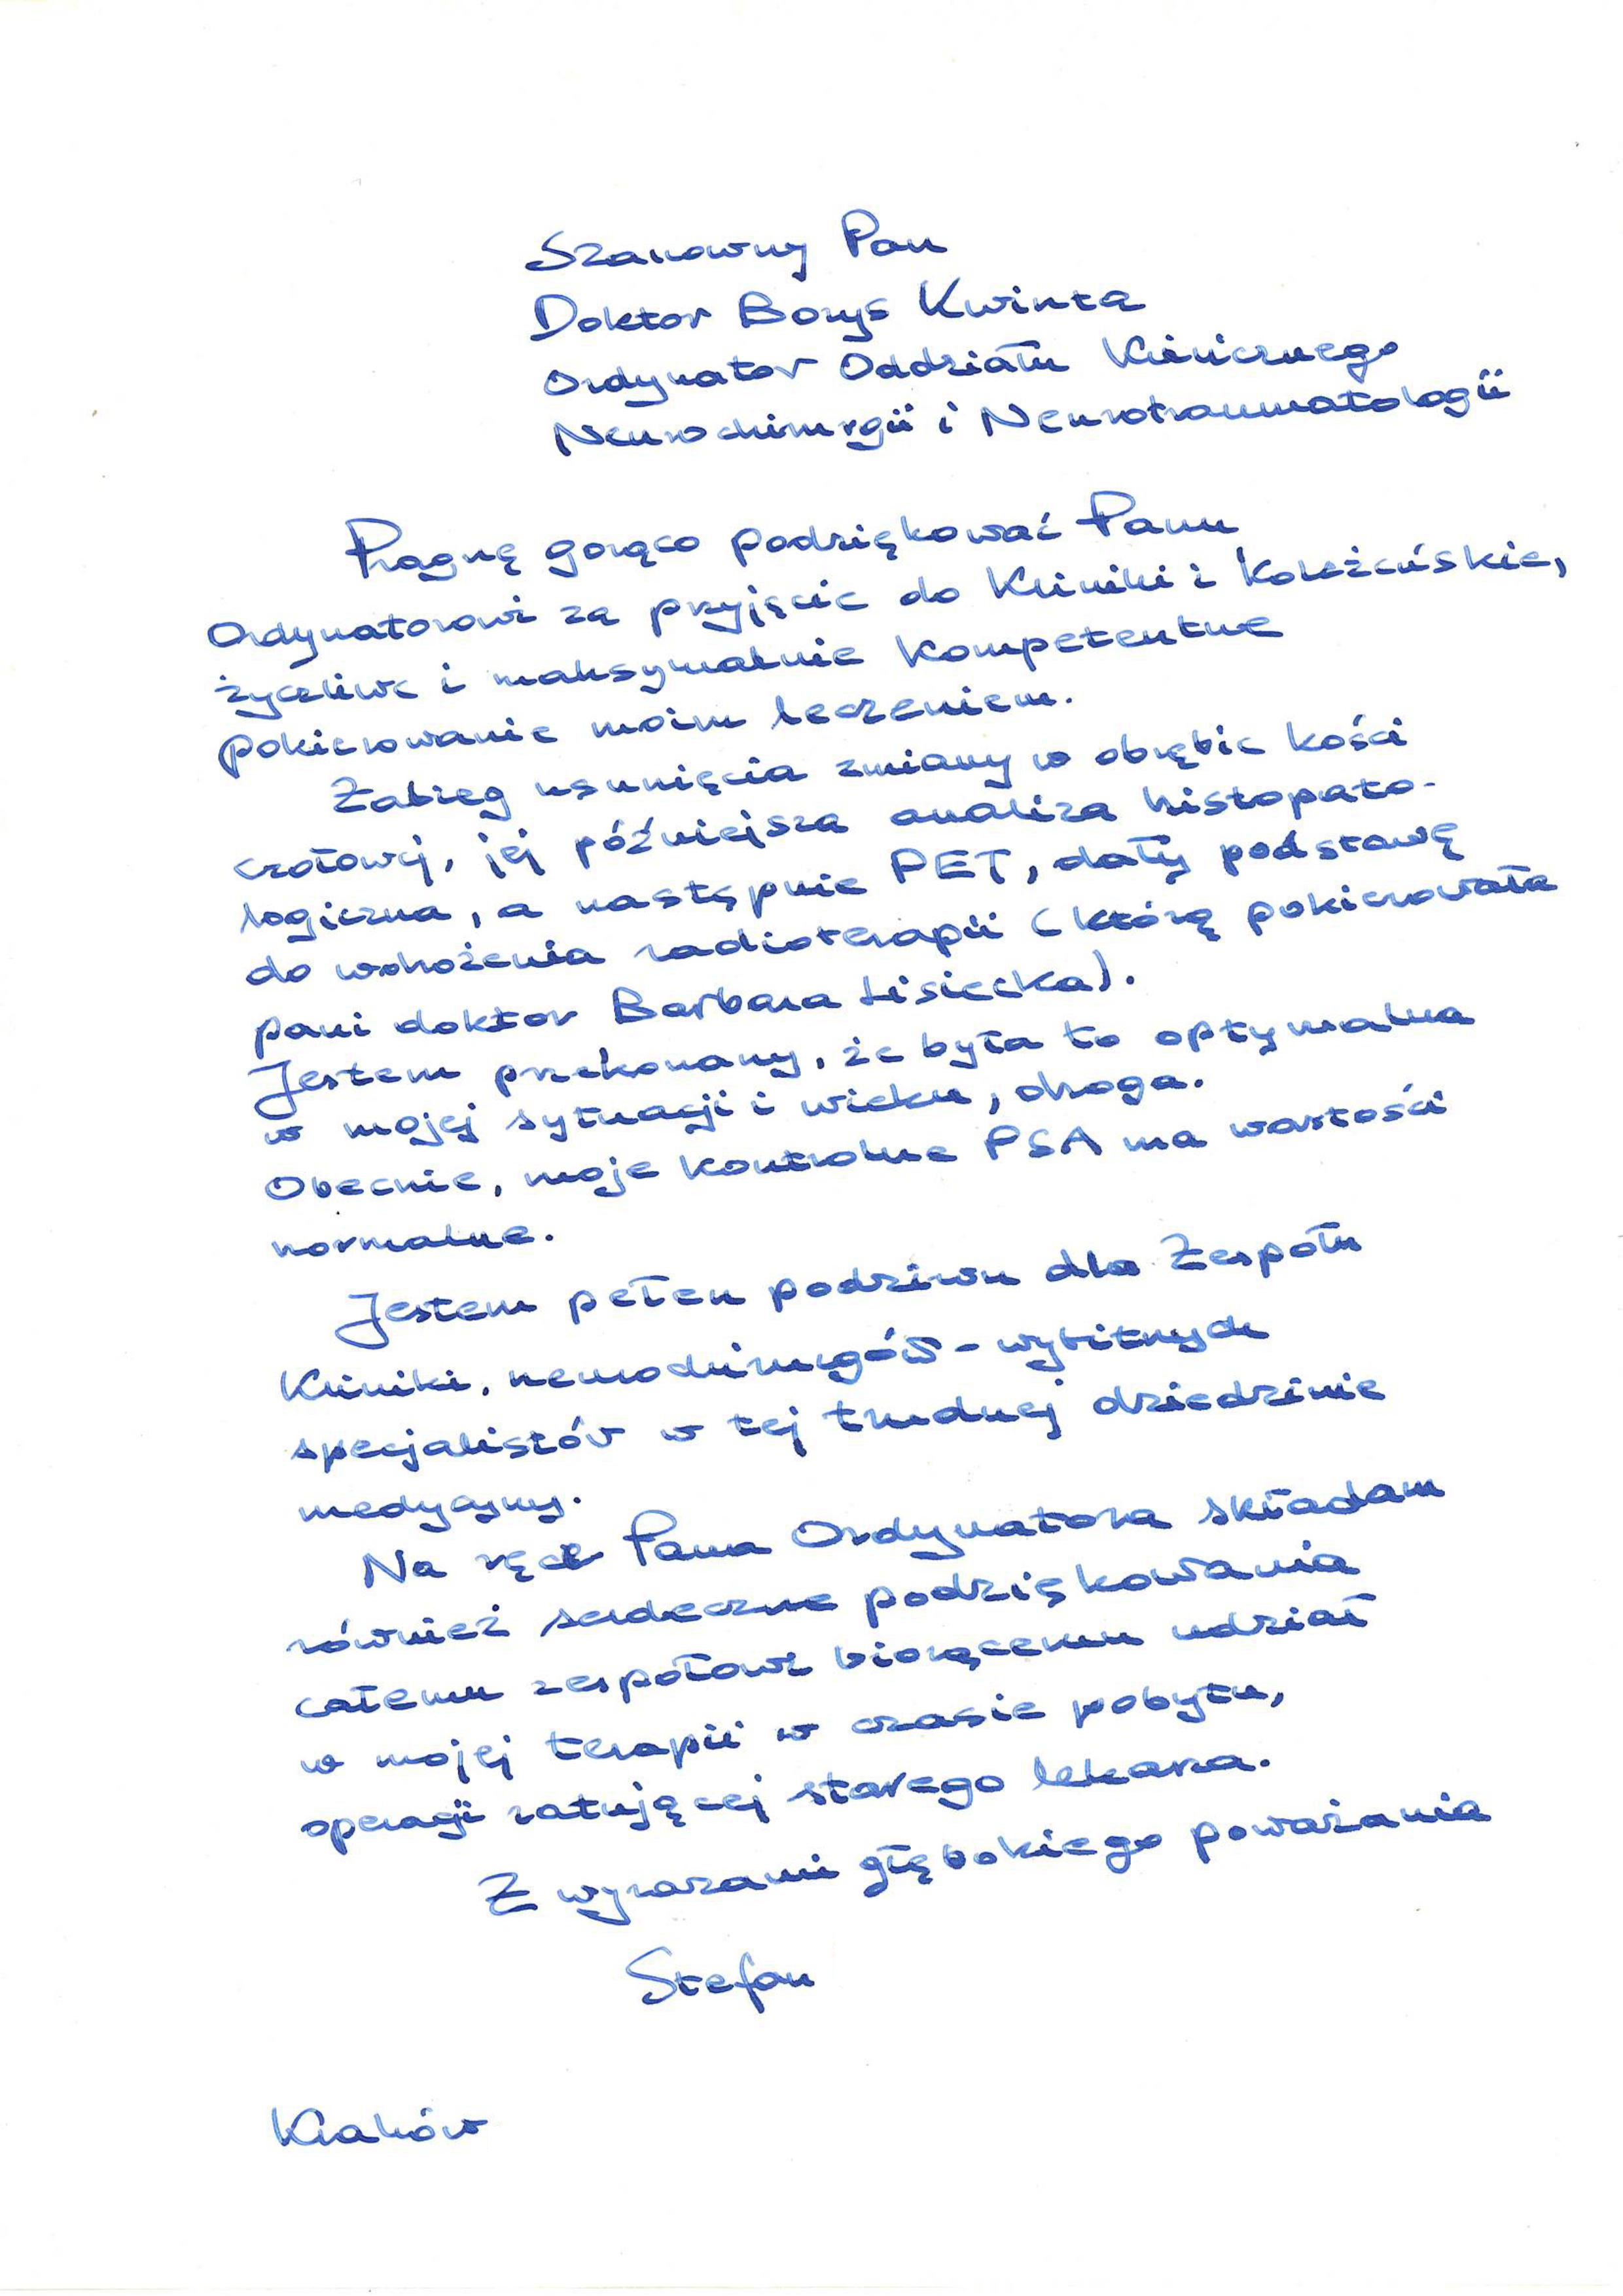 Szanowny Pan
Doktor Borys Kwinta
Ordynator Oddziału Klinicznego
Neurochirurgii i Neurotraumatologii
Pragnę gorąco podziękować Panu
Ordynatorowi za przyjęcie do Kliniki i koleżeńskie,
życzliwe i maksymalnie kompetentne
pokierowanie moim leczeniem.
Zabieg usunięcia zmiany w obrębie kości
czołowej, jej późniejsza analiza histopato-
logiczna, a następnie PET, dały podstawę
do wdrożenia radioterapii (którą pokierowała
pani doktor Barbara Lisiecka).
Jestem przekonany, że była to optymalna
w mojej sytuacji i wieku, droga.
Obecnie, moje kontrolne PSA ma wartości
normalne.
Jestem pełen podziwu dla Zespołu
Kliniki, neurochirurgów - wybitnych
specjalistów w tej trudnej dziedzinie
medycyny.
Na ręce Pana Ordynatora składam
również serdeczne podziękowania
całemu zespołowi biorącemu udział
w mojej terapii w czasie pobytu,
operacji ratującej starego lekarza.
Z wyrazami głębokiego poważania
Stefan
Kraków